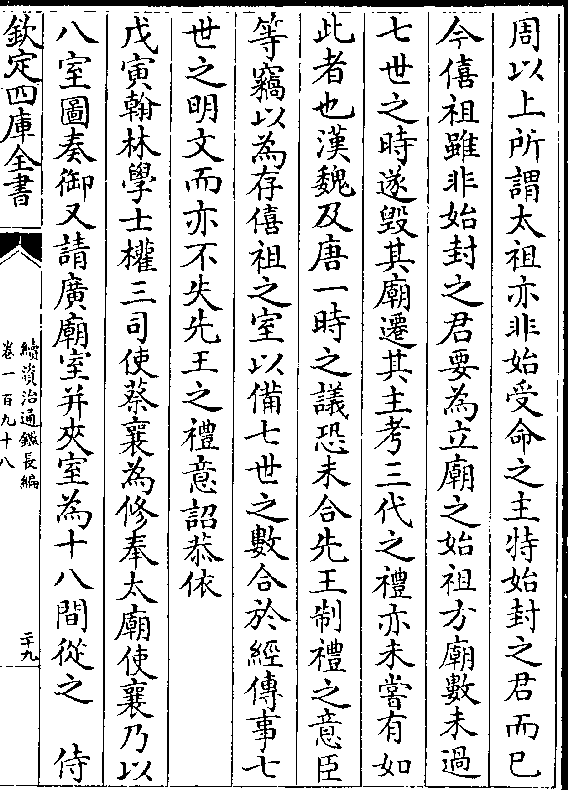 周以上所謂太祖亦非始受命之主特始封之君而已
今僖祖雖非始封之君要為立廟之始祖方廟數未過
七世之時遂毀其廟遷其主考三代之禮亦未嘗有如
此者也漢魏及唐一時之議恐未合先王制禮之意臣
等竊以為存僖祖之室以備七世之數合於經傳事七
世之明文而亦不失先王之禮意詔恭依
戊寅翰林學士權三司使蔡襄為修奉太廟使襄乃以
八室圖奏御又請廣廟室并夾室為十八間從之　侍
欽定四庫全書
續資治通鑑長編
卷一百九十八
二十九